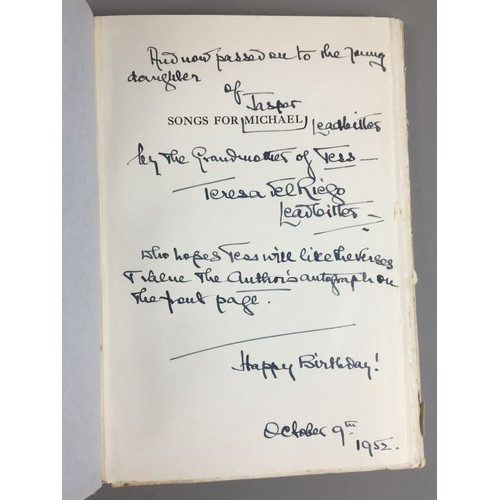 And now passed on to the young
daughter
of
Jasper
SONGS FOR MICHAEL Leadbitter
by the Grandmother of Tess —
Teresa del Riego
Leadbitter —
who hopes Tess will like the verses
& the Author's autograph on
the front page.
Happy Birthday!
October 9th
1952.